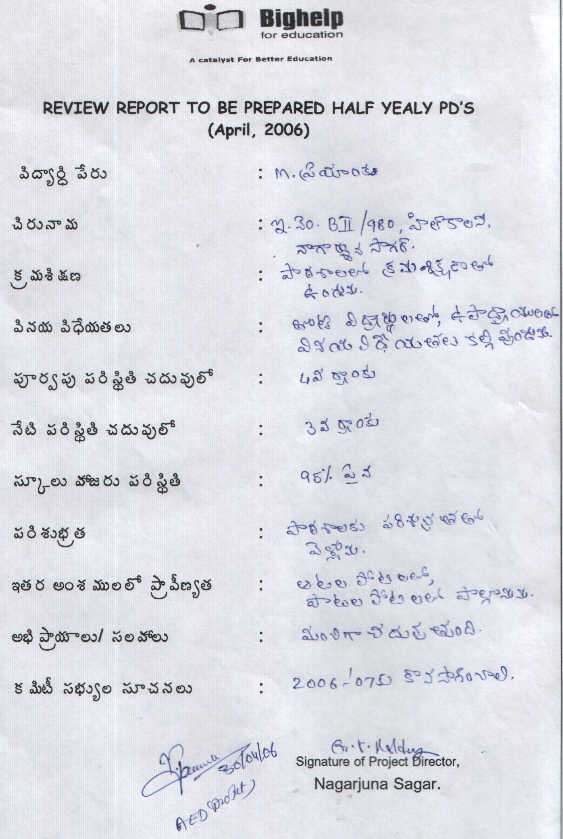 Bighelp
for education
A catalyst For Better Education
REVIEW REPORT TO BE PREPARED HALF YEALY PD'S
(April, 2006)
విద్యార్థి పేరు : M. ప్రియాంక
చిరునామ : ఇ.నెం. BII/980, హిల్ కాలని,
నాగార్జున సాగర్.
క్రమశిక్షణ : పాఠశాలలో క్రమశిక్షణతో
ఉండును.
వినయ విధేయతలు : తోటి విద్యార్థులతో, ఉపాధ్యాయులతో
వినయ విధేయతలు కల్గి వుండును.
పూర్వపు పరిస్థితి చదువులో : 4వ ర్యాంకు
నేటి పరిస్థితి చదువులో : 3వ ర్యాంకు
స్కూలు హాజరు పరిస్థితి : 95% పైన
పరిశుభ్రత : పాఠశాలకు పరిశుభ్రతతో
వెళ్లును.
ఇతర అంశములలో ప్రావీణ్యత : ఆటల పోటిలలో,
పాటల పోటిలలో పాల్గొనును.
అభిప్రాయాలు/ సలహాలు : మంచిగా చదువుతుంది.
కమిటీ సభ్యుల సూచనలు : 2006-'07కు కొనసాగించాలి.
30/04/06
Signature of Project Director,
Nagarjuna Sagar.